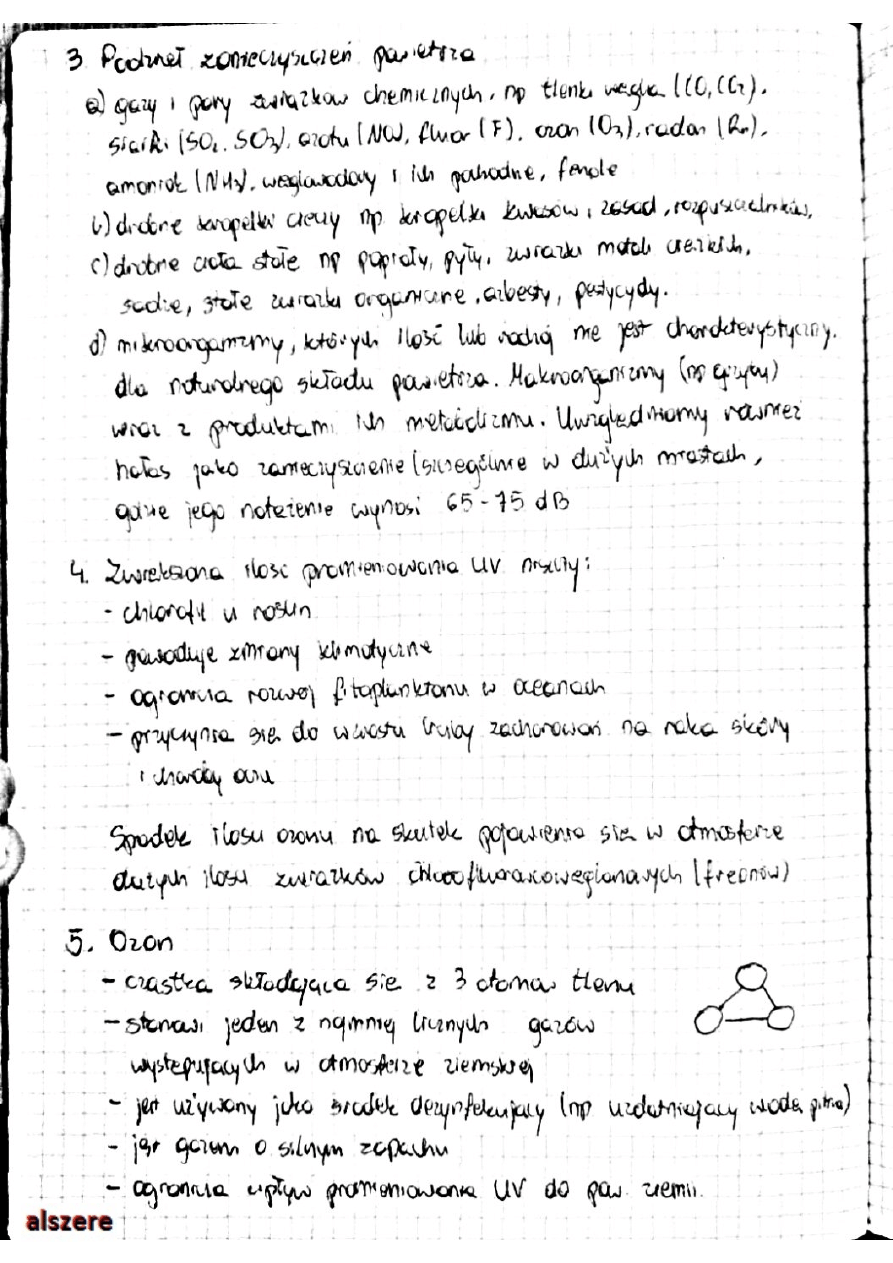 3. Podział zanieczyszczeń powietrza
a) gazy i pary związków chemicznych, np tlenki węgla (CO, CO2),
siarki (SO2, SO3), azotu (NOx), fluor (F), ozon (O3), radon (Rn),
amoniak (NH3), węglowodory i ich pochodne, fenole
b) drobne kropelki cieczy np. kropelki kwasów i zasad, rozpuszczalników,
c) drobne ciała stałe np popioły, pyły, związki metali ciężkich,
sadze, stałe związki organiczne, azbesty, pestycydy.
d) mikroorganizmy, których ilość lub rodzaj nie jest charakterystyczny
dla naturalnego składu powietrza. Makroorganizmy (np grzyby)
wraz z produktami ich metabolizmu. Uwzględniamy również
hałas jako zanieczyszczenie (szczególnie w dużych miastach,
gdzie jego natężenie wynosi 65-75 dB
4. Zwiększona ilość promieniowania UV niszczy:
- chlorofil u roślin
- powoduje zmiany klimatyczne
- ogranicza rozwój fitoplanktonu w oceanach
- przyczynia się do wzrostu liczby zachorowań na raka skóry
i choroby oczu
Spadek ilości ozonu na skutek pojawienia się w atmosferze
dużych ilości związków chlorofluorowęglowych (freonów)
5. Ozon
- cząstka składająca się z 3 atomów tlenu
- stanowi jeden z najmniej licznych gazów
występujących w atmosferze ziemskiej
- jest używany jako środek dezynfekujący (np uzdatniający wodę pitną)
- jest gazem o silnym zapachu
- ogranicza wpływ promieniowania UV do pow. ziemii.
alszere